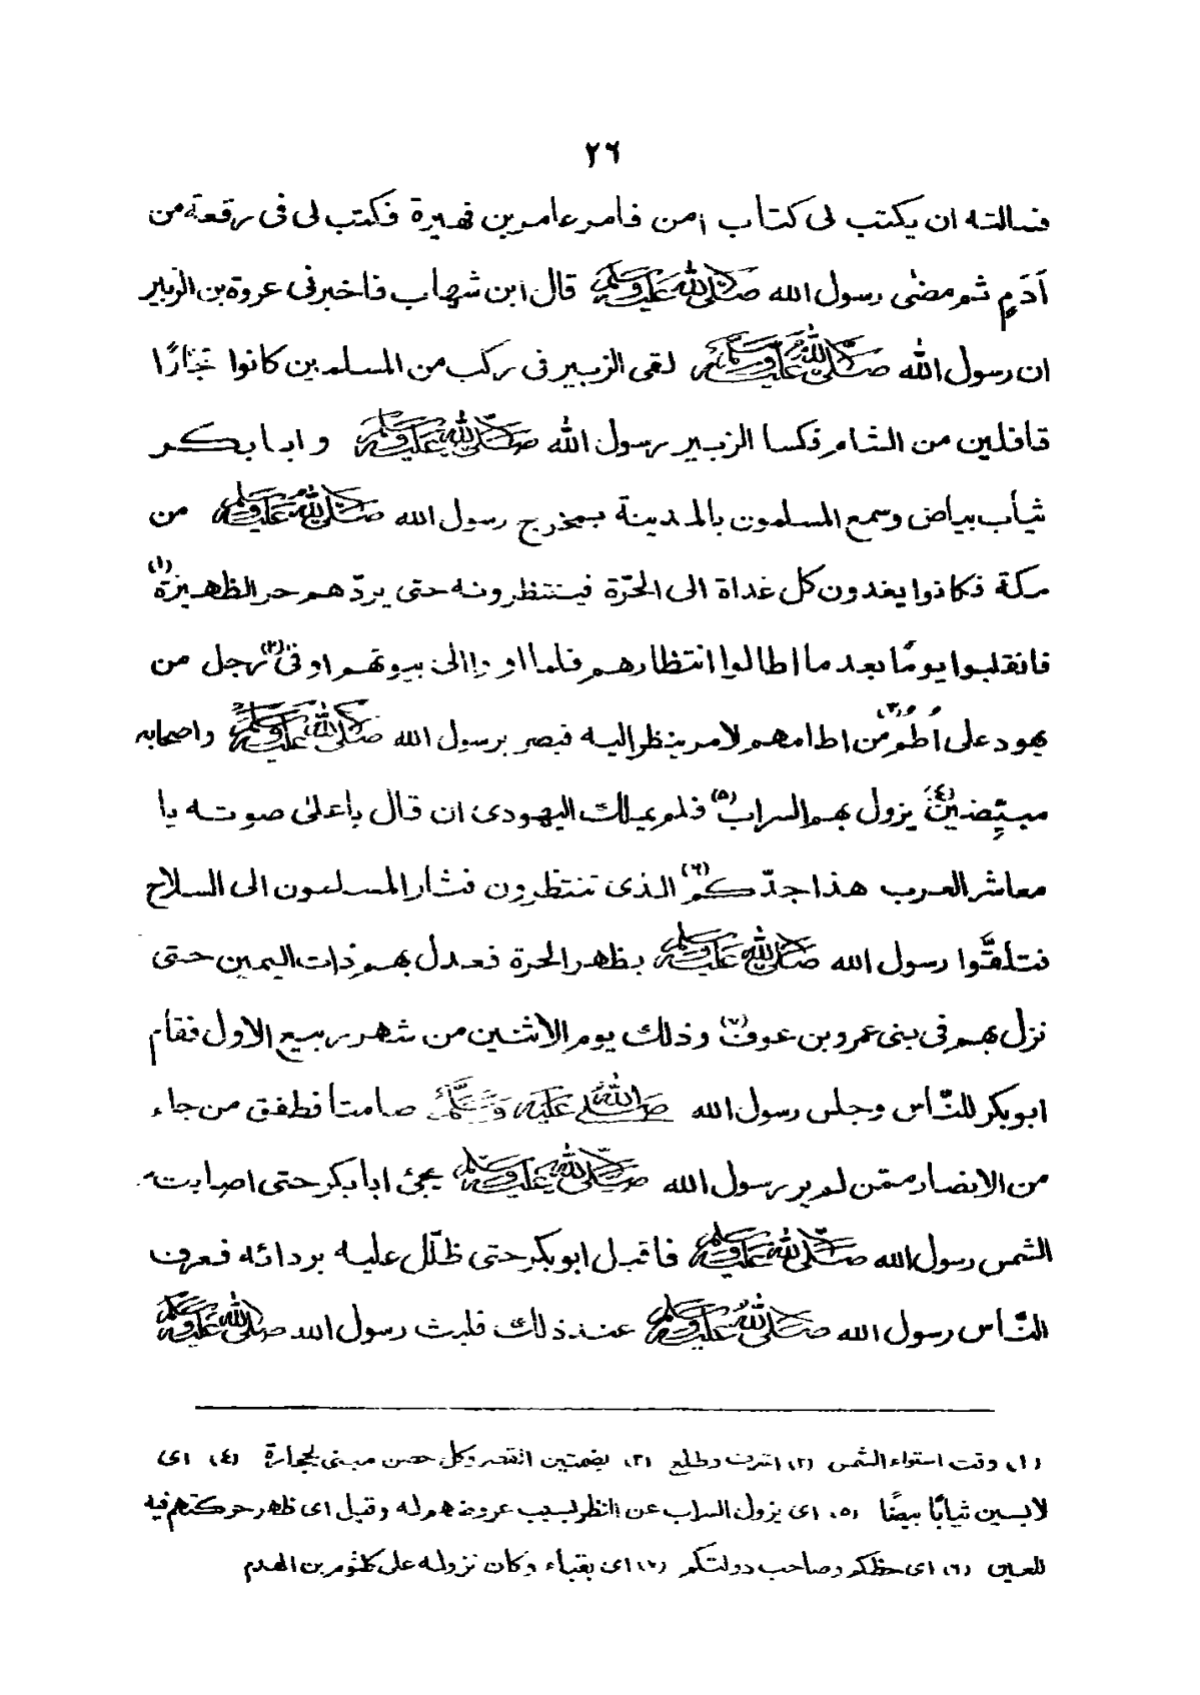 ٢٦
فسالته ان يكتب لى كتاب امن فامر عامر بن فهيرة فكتب لى فى رقعة من
اَدَمٍ ثم مضٰى رسول الله صلى الله عليه وسلم قال ابن شهاب فاخبرنى عروة بن الزبير
ان رسول الله صلى الله عليه وسلم لقى الزبير فى ركب من المسلمين كانوا تجارًا
قافلين من الشام فكسا الزبير رسول الله صلى الله عليه وسلم وابا بكر
ثياب بياض وسمع المسلمون بالمدينة بمخرج رسول الله صلى الله عليه وسلم من
مكة فكانوا يغدون كل غداة الى الحرّة فينتظرونه حتى يردّهم حر الظهيرة (١)
فانقلبوا يومًا بعد ما اطالوا انتظارهم فلما اووا الى بيوتهم اوفىٰ (٢) رجل من
يهود على اُطُمٍ (٣) من اطامهم لامر ينظر اليه فبصر برسول الله صلى الله عليه وسلم واصحابه
مبيّضين (٤) يزول بهم السراب (٥) فلم يملك اليهودى ان قال باعلىٰ صوته يا
معاشر العرب هذا جدّكم (٦) الذى تنتظرون فثار المسلمون الى السلاح
فتلقَّوا رسول الله صلى الله عليه وسلم بظهر الحرة فعدل بهم ذات اليمين حتى
نزل بهم فى بنى عمرو بن عوف (٧) وذلك يوم الاثنين من شهر ربيع الاول فقام
ابوبكر للنّاس وجلس رسول الله صلى الله عليه وسلم صامتا فطفق من جاء
من الانصار ممّن لم ير رسول الله صلى الله عليه وسلم يجئ ابا بكر حتى اصابت
الشمس رسول الله صلى الله عليه وسلم فاقبل ابوبكر حتى ظلّل عليه بردائه فعرف
النّاس رسول الله صلى الله عليه وسلم عند ذلك فلبث رسول الله صلى الله عليه وسلم
(١) وقت استواء الشمس (٢) اشرف وطلع (٣) بضمتين القصر وكل حصن مبنى بحجارة (٤) اى
لابسين ثيابًا بيضًا (٥) اى يزول السراب عن النظر بسبب عروضهم له وقيل اى ظهر حركتهم فيه
للعين (٦) اى حظكم وصاحب دولتكم (٧) اى بقباء وكان نزوله على كلثوم بن الهدم